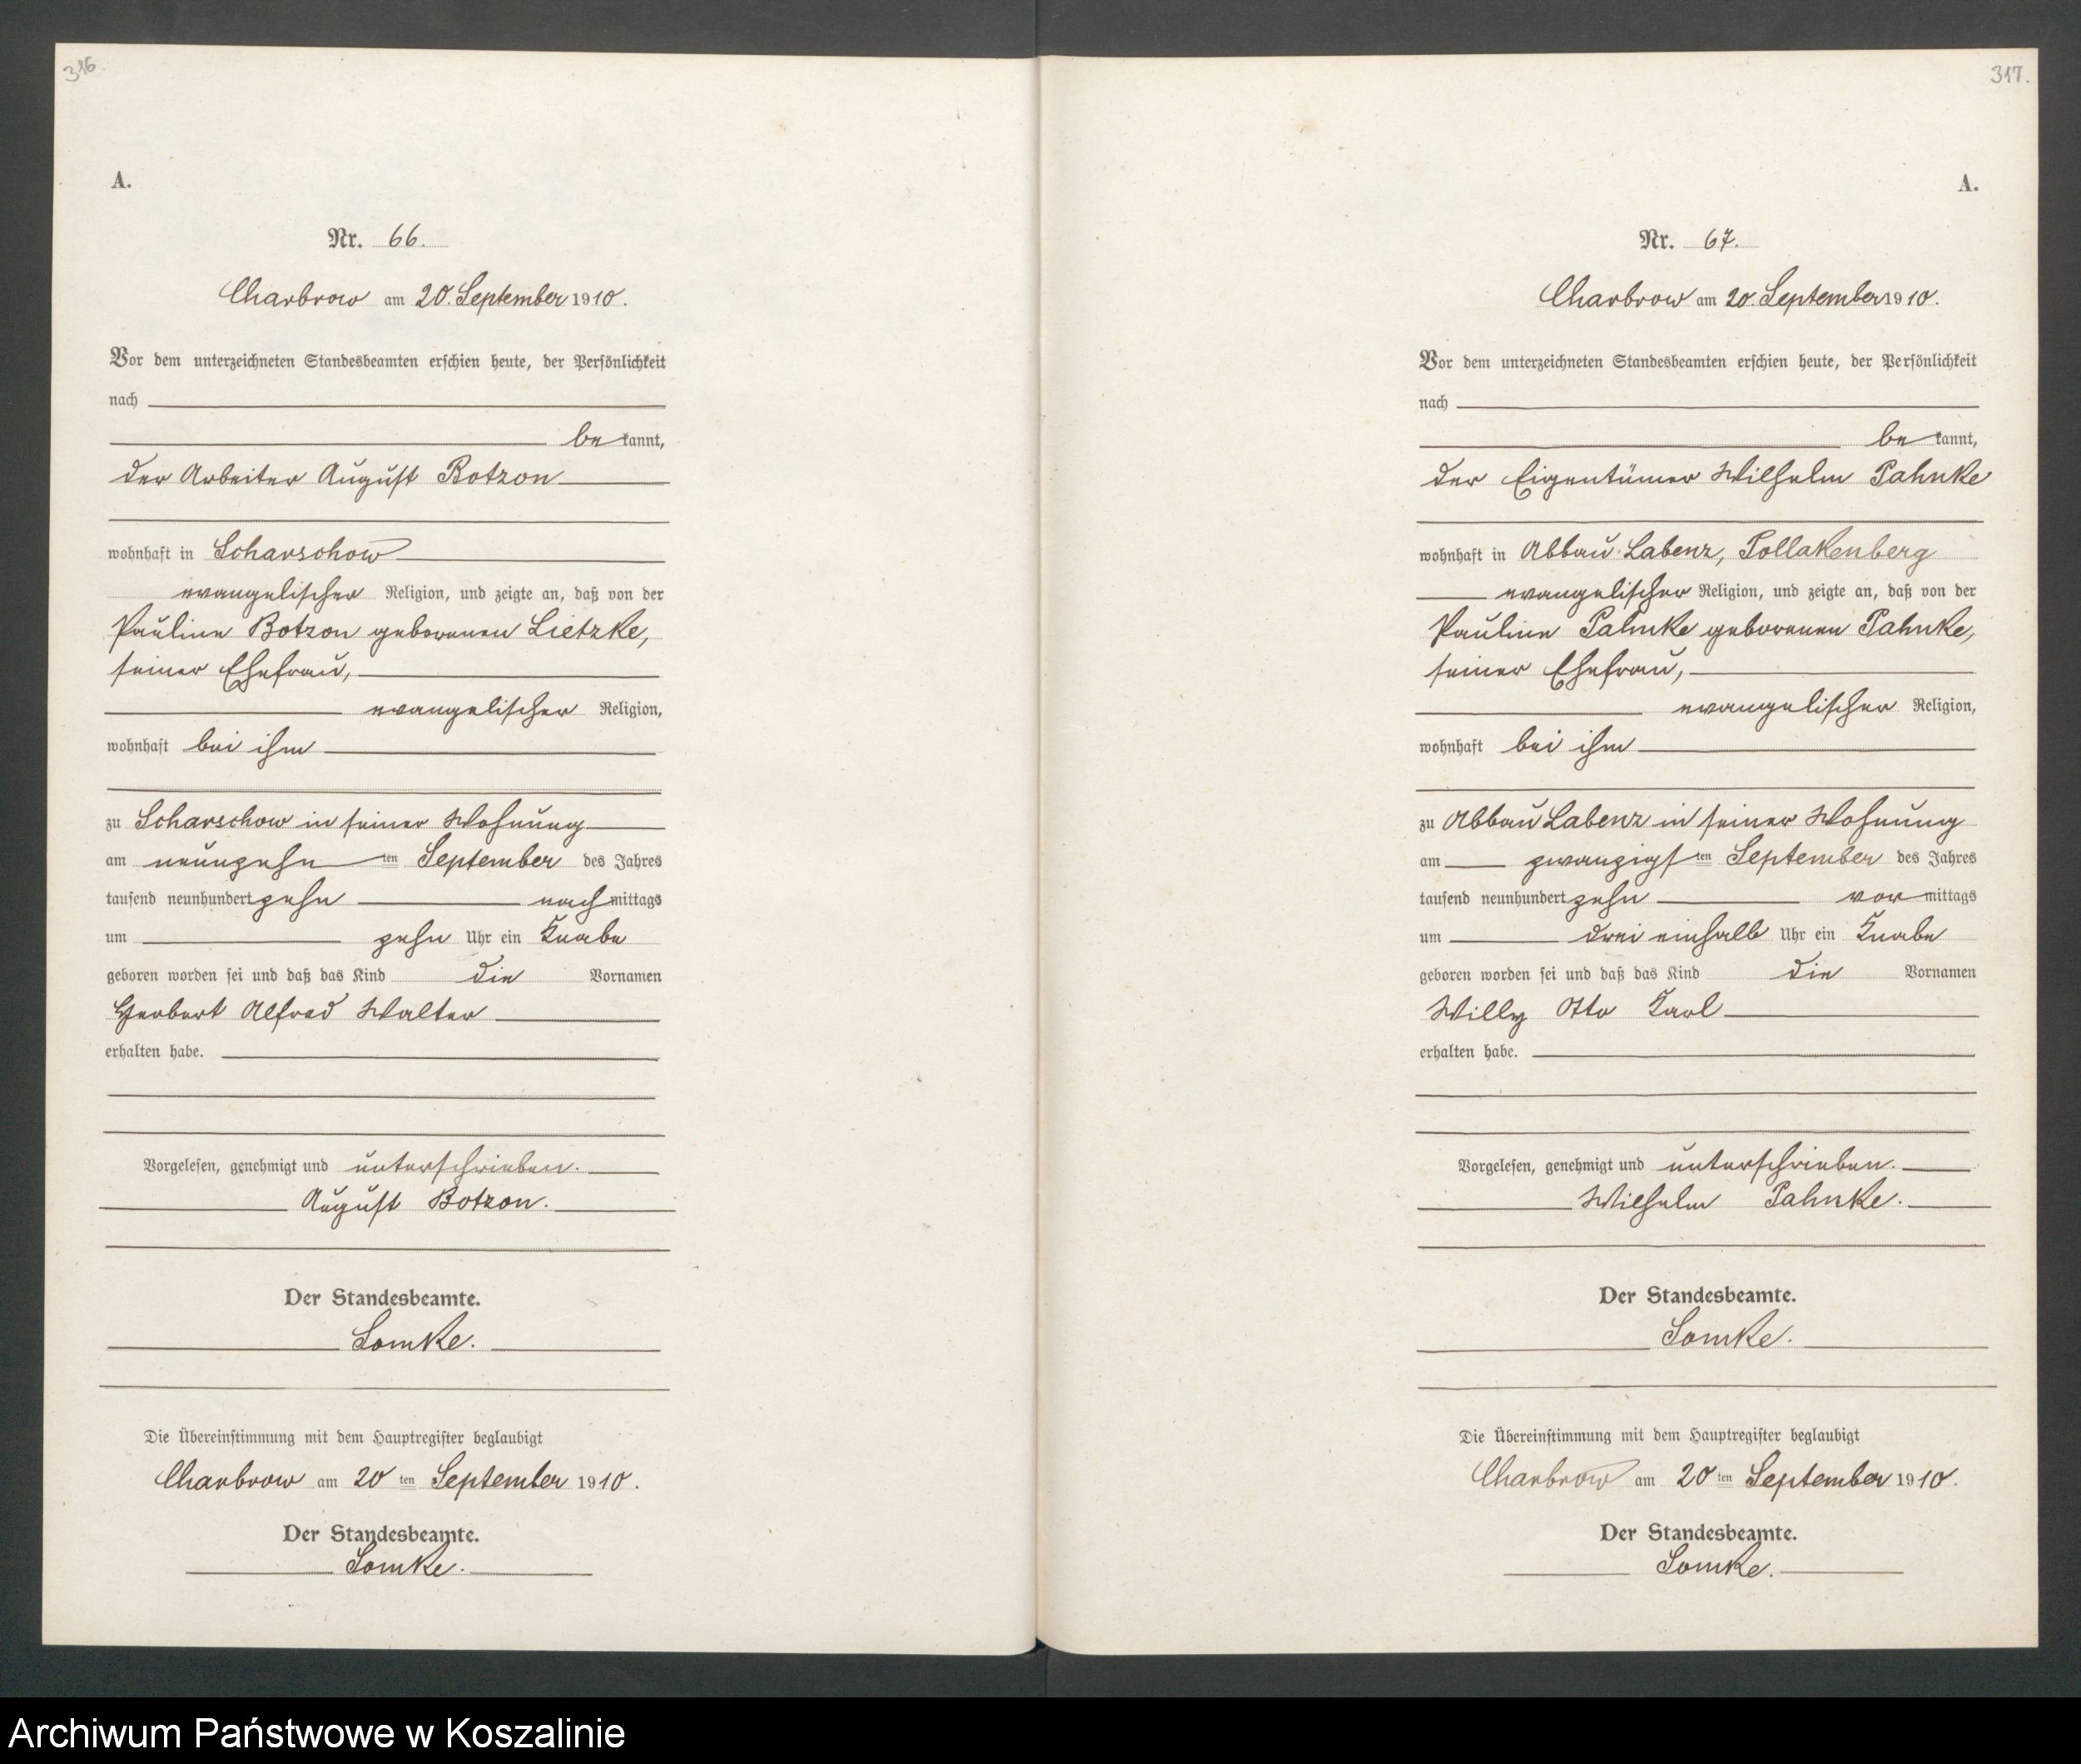 316.
A.
Nr. 66.
Charbrow am 20. September 1910.
Vor dem unterzeichneten Standesbeamten erschien heute, der Persönlichkeit
nach
be kannt,
der Arbeiter August Botzon
wohnhaft in Scharschow
evangelischer Religion, und zeigte an, daß von der
Pauline Botzon geborenen Lietzke,
seiner Ehefrau,
evangelischer Religion,
wohnhaft bei ihm
zu Scharschow in seiner Wohnung
am neunzehn ten September des Jahres
tausend neunhundert zehn nach mittags
um zehn Uhr ein Knabe
geboren worden sei und daß das Kind die Vornamen
Herbert Alfred Walter
erhalten habe.
Vorgelesen, genehmigt und unterschrieben.
August Botzon.
Der Standesbeamte.
Lomke.
Die Übereinstimmung mit dem Hauptregister beglaubigt
Charbrow am 20 ten September 1910.
Der Standesbeamte.
Lomke.
317.
A.
Nr. 67.
Charbrow am 20. September 1910.
Vor dem unterzeichneten Standesbeamten erschien heute, der Persönlichkeit
nach
be kannt,
der Eigentümer Wilhelm Pahnke
wohnhaft in Abbau Labenz, Pollakenberg
evangelischer Religion, und zeigte an, daß von der
Pauline Pahnke geborenen Pahnke,
seiner Ehefrau,
evangelischer Religion,
wohnhaft bei ihm
zu Abbau Labenz in seiner Wohnung
am zwanzigs ten September des Jahres
tausend neunhundert zehn vor mittags
um drei einhalb Uhr ein Knabe
geboren worden sei und daß das Kind die Vornamen
Willy Otto Karl
erhalten habe.
Vorgelesen, genehmigt und unterschrieben.
Wilhelm Pahnke.
Der Standesbeamte.
Lomke.
Die Übereinstimmung mit dem Hauptregister beglaubigt
Charbrow am 20 ten September 1910.
Der Standesbeamte.
Lomke.
Archiwum Państwowe w Koszalinie